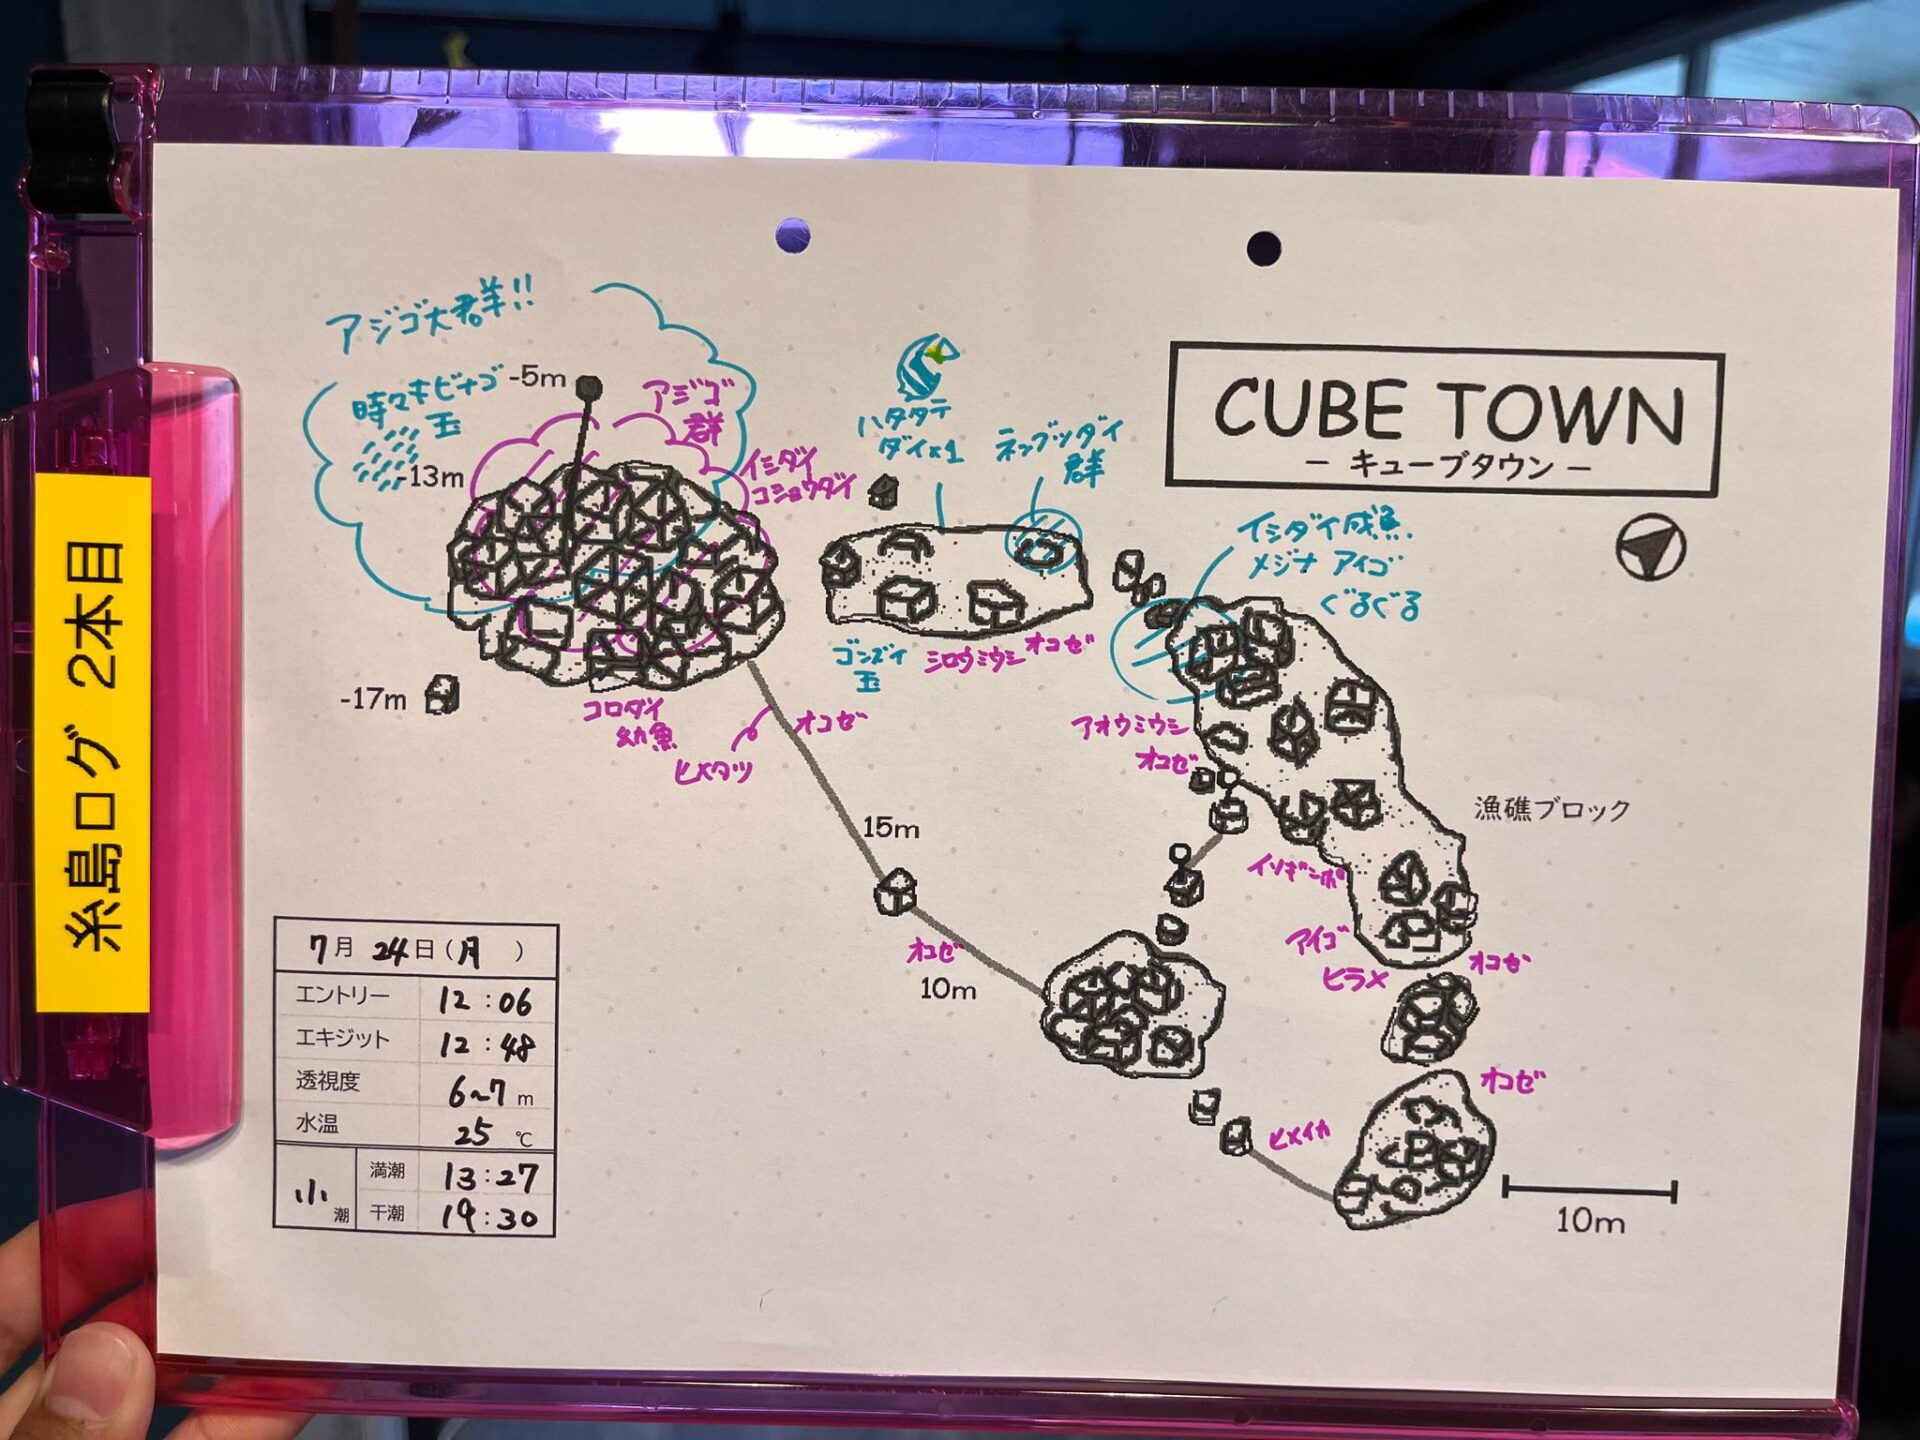 糸島ログ 2本目
CUBE TOWN
− キューブタウン −
アジゴ大群!!
時々キビナゴ
玉
-5m
-13m
-17m
アジゴ
群
イシダイ
コショウダイ
ハタタテ
ダイ×1
ネンブツダイ
群
イシダイ成魚
メジナ アイゴ
ぐるぐる
ゴンズイ
玉
シロウミウシ
オコゼ
コロダイ
幼魚
ヒメタツ
オコゼ
アオウミウシ
オコゼ
漁礁ブロック
15m
イソギンポ
オコゼ
10m
アイゴ
ヒラメ
オコゼ
オコゼ
ヒメイカ
10m
7月 24日(月 )
エントリー 12:06
エキジット 12:48
透視度 6~7 m
水温 25 ℃
小潮 満潮 13:27
干潮 19:30